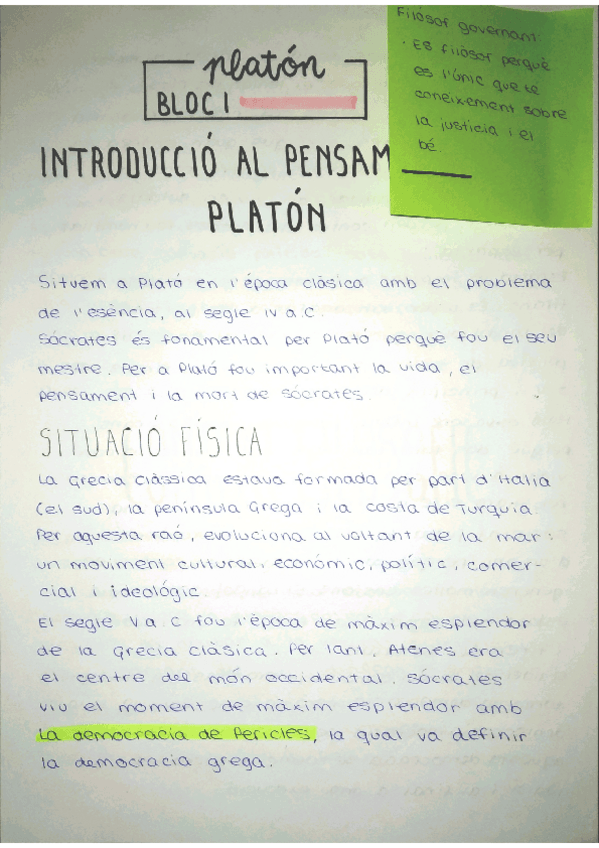 platón
BLOC I
INTRODUCCIÓ AL PENSAM
PLATÓN
Filòsof governant:
· ES filòsof perquè
es l'únic que te
coneixement sobre
la justicia i el
bé.
Situem a Plató en l'época clàsica amb el problema
de l'esència, al segle IV a.C.
Sócrates és fonamental per Plató perquè fou el seu
mestre. Per a Plató fou important la vida, el
pensament i la mort de Sócrates.
SITUACIÓ FÍSICA
La Grecia Clàssica estava formada per part d'Italia
(el sud), la península Grega i la costa de Turquia.
Per aquesta raó, evoluciona al voltant de la mar:
un moviment cultural, económic, polític, comer-
cial i ideológic.
El segle V a.C fou l'época de màxim esplendor
de la Grecia clàsica. Per tant, Atenes era
el centre del món occidental. Sócrates
viu el moment de màxim esplendor amb
la democracia de Pericles, la qual va definir
la democracia grega.